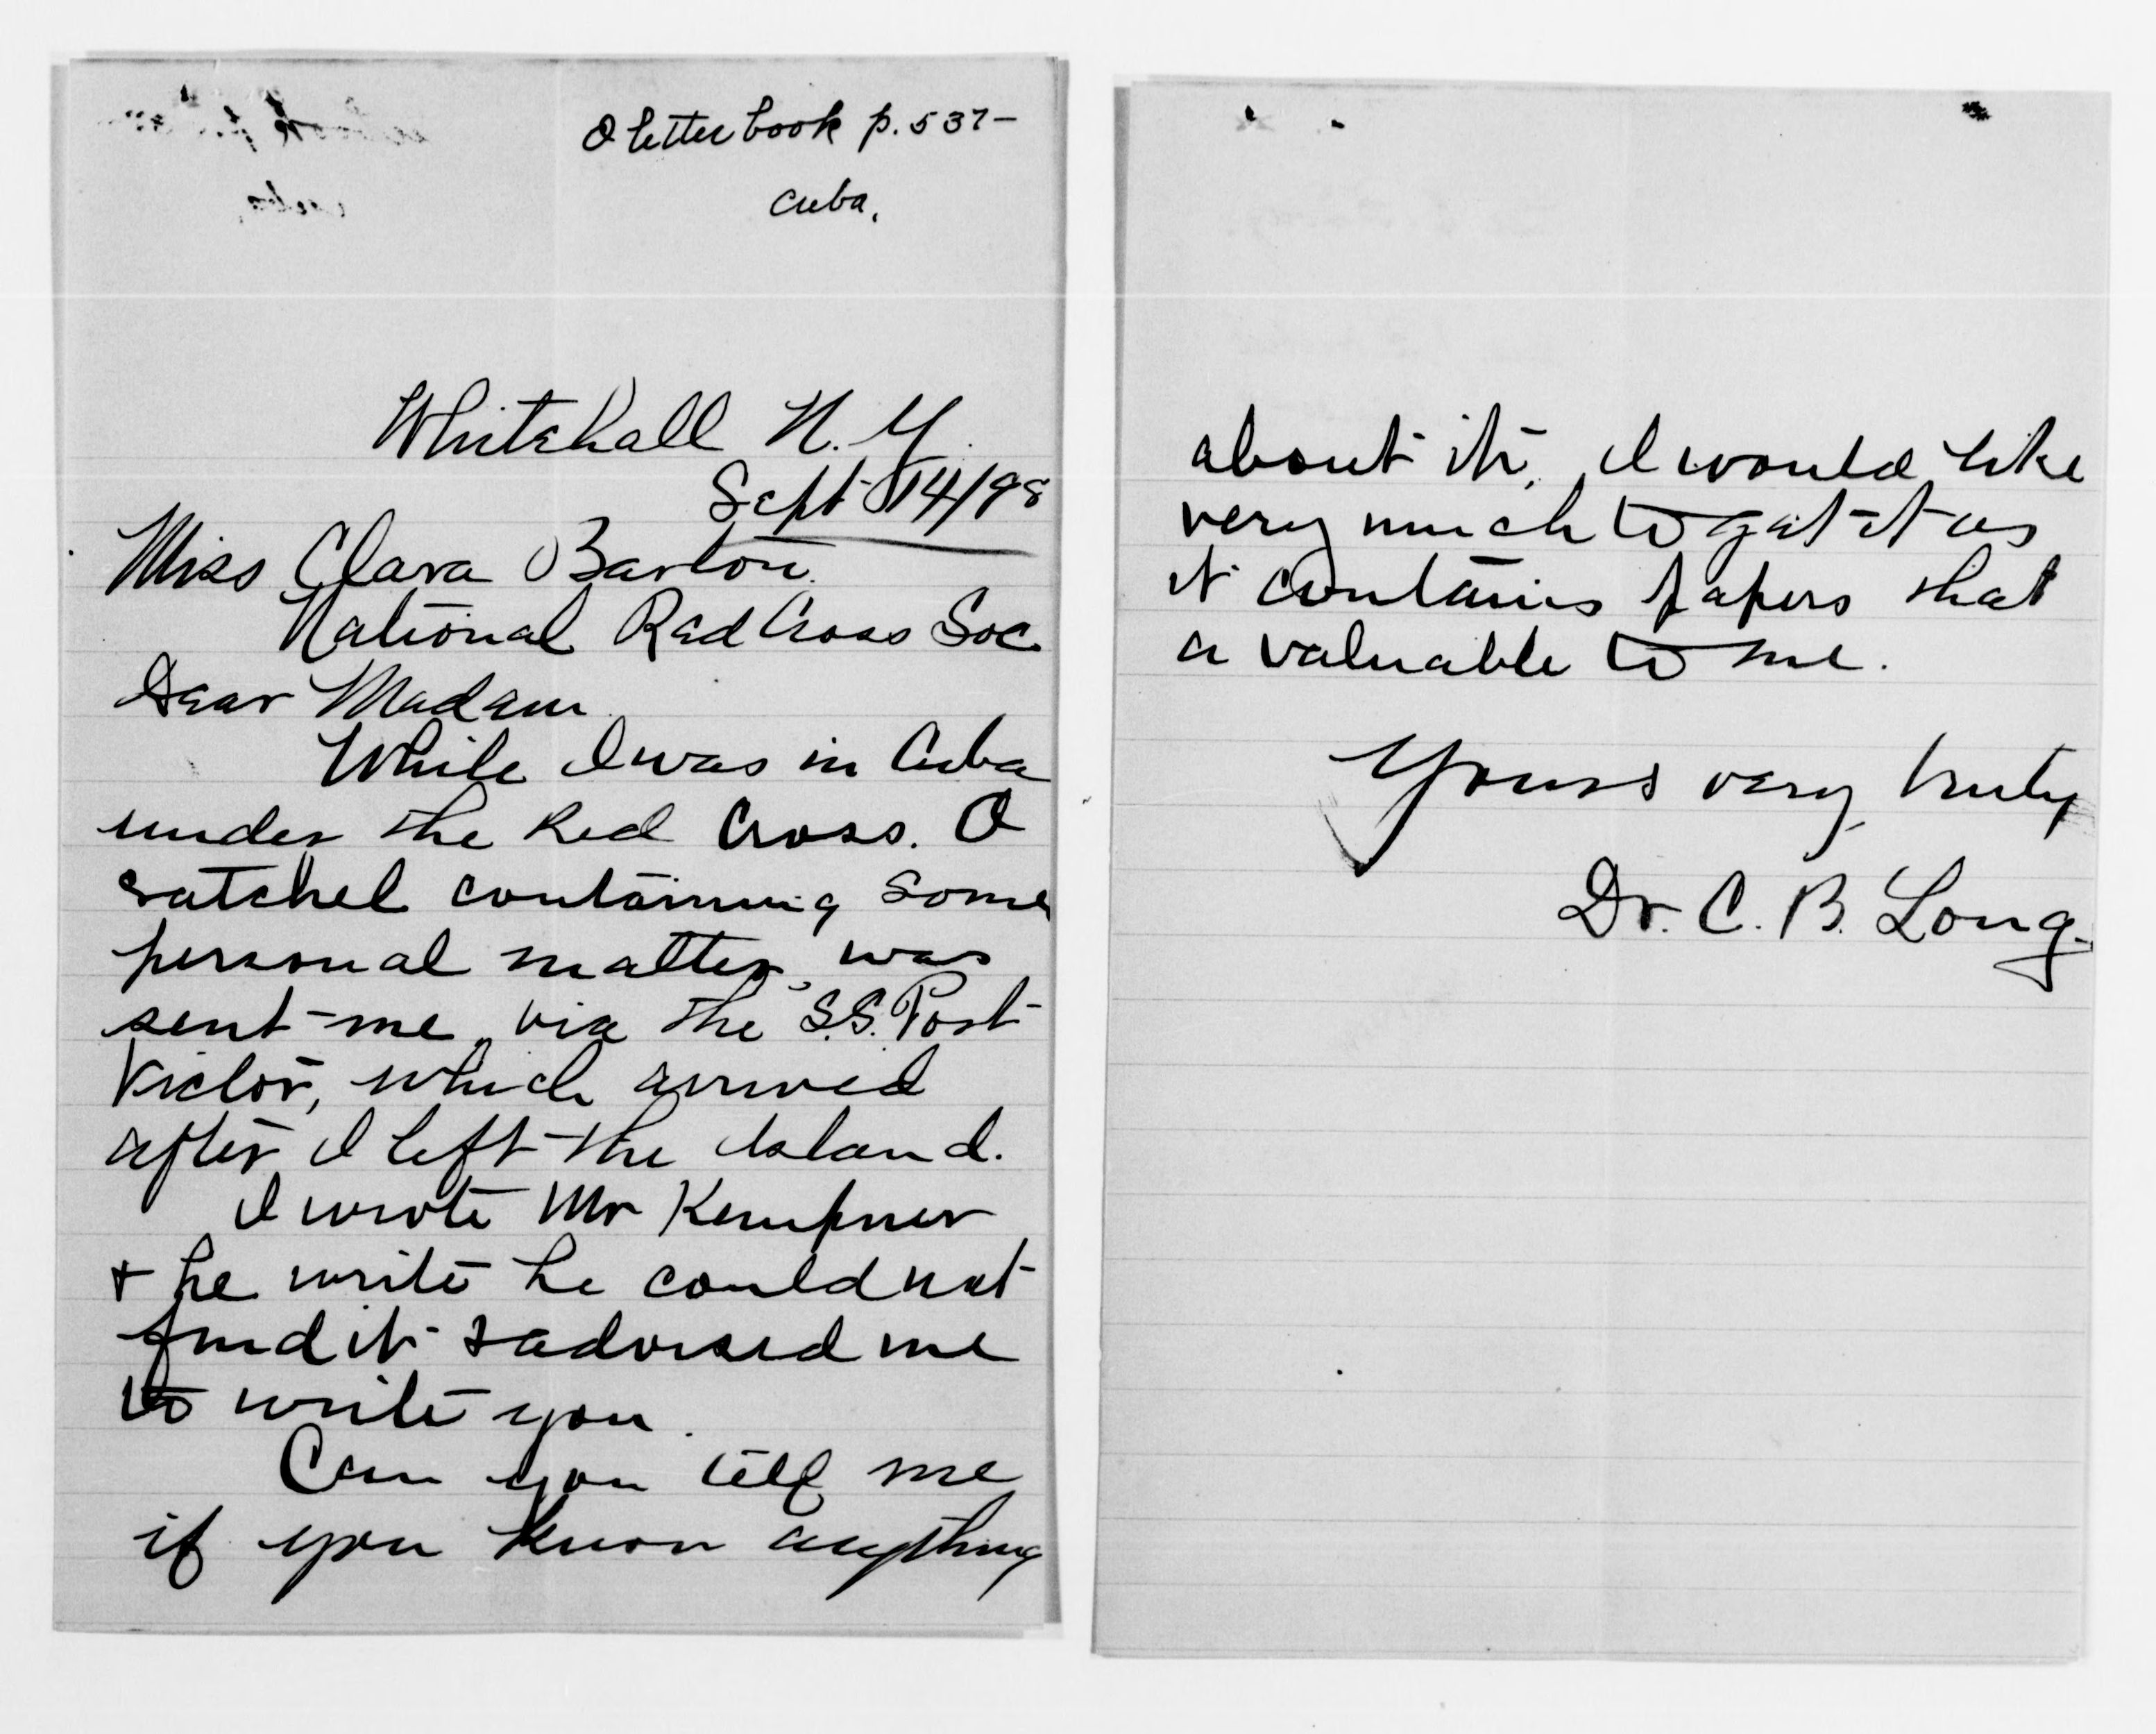 O letter book p. 537-
Cuba,
Whitehall N. Y.
Sept 14/98
Miss Clara Barton.
National Red Cross Soc.
Dear Madam.
While I was in Cuba
under the Red Cross. A
satchel containing some
personal matter, was
sent me via the S.S. Port
Victor, which arrived
after I left the Island.
I wrote Mr Kempner
& he write he could not
find it & advised me
to write you.
Can you tell me
if you know anything
about it, I would like
very much to get it as
it contains papers that
a valuable to me.
Yours very truly
Dr. C. B. Long.